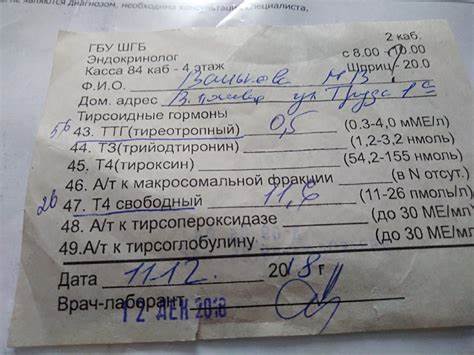 не являются диагнозом, необходима консультация специалиста.
ГБУ ШГБ 2 каб.
Эндокринолог с 8.00 - 10.00
Касса 84 каб - 4 этаж Шприц - 20.0
Ф.И.О.
Дом. адрес ул Труда
Тирсоидные гормоны
43. ТТГ(тиреотропный) 0,5 (0.3-4,0 мМЕ/л)
44. Т3(трийодтиронин) (1,2-3,2 нмоль)
45. Т4(тироксин) (54,2-155 нмоль)
46. А/т к макросомальной фракции (в N отсут.)
2б 47. Т4 свободный 11,6 (11-26 пмоль/л)
48. А/т к тирсопероксидазе (до 30 МЕ/мл
49.А/т к тирсоглобулину (до 30 МЕ/мл
Дата 11.12. 2018 г
Врач-лаборант 12 ДЕК 2018